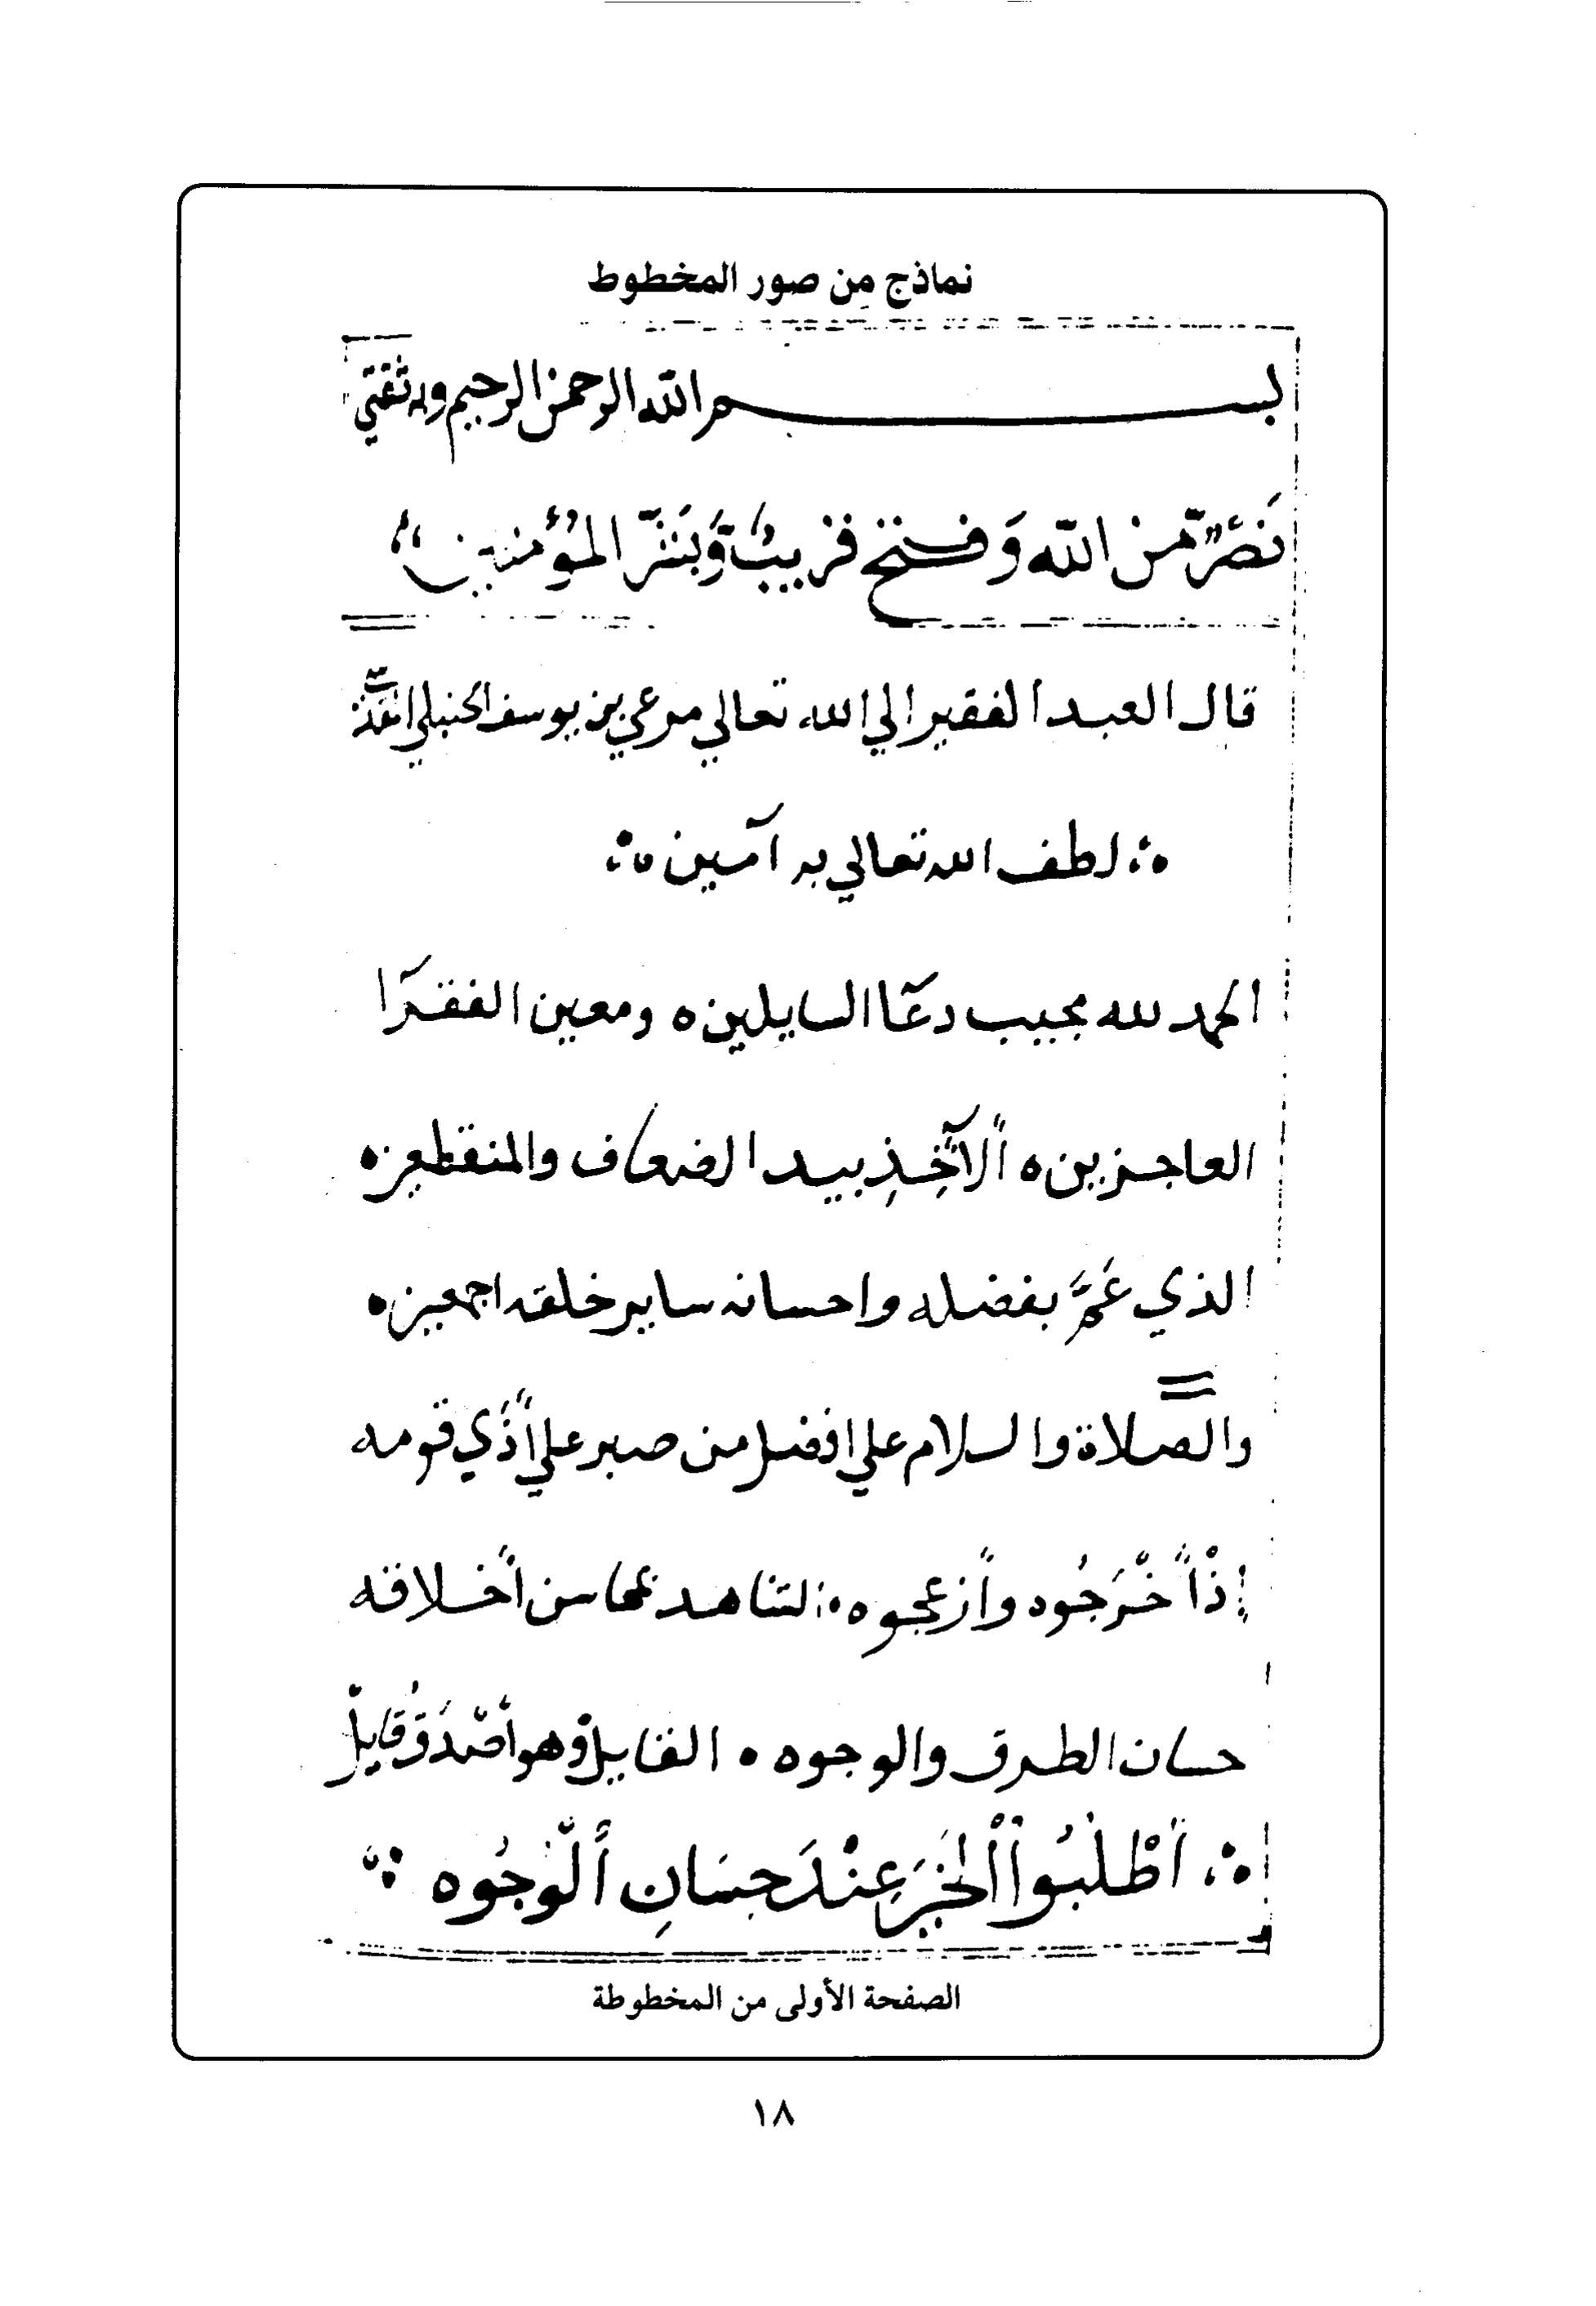 نماذج من صور المخطوط
بسم الله الرحمن الرحيم وبه ثقتي
نَصْرٌ مّن الله وَفتح قريبٌ وَبَشّر المُؤمنين
قال العبد الفقير الي الله تعالي مرعي بن يوسف الحنبلي
لطف الله تعالي به آمين
الحمد لله مجيب دعآ السايلين ومعين الفقرآ
العاجزين الآخِذِ بيد الضعاف والمنقطعين
الذي عَمَّ بفضله واحسانه ساير خلقه اجمعين
والصّلاة والسلام علي افضل من صبر علي أَذَي قومه
إِذْ أَخْرَجُوه وأزعجوه الشاهد محاسن أخلاقه
حسان الطرق والوجوه القايل وهو أصْدَقُ قايل
أطْلبُوا الخَيرَ عِنْدَ حِسَانِ الوُجُوه
الصفحة الأولى من المخطوطة
١٨